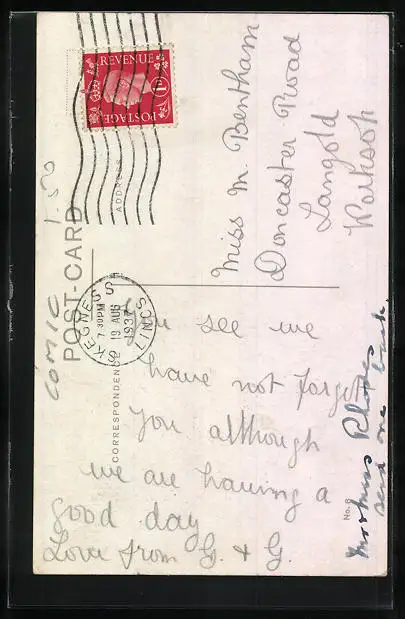 COMIC 1.50
POST-CARD
ADDRESS
CORRESPONDENCE
POSTAGE
REVENUE
1D
SKEGNESS
7.30PM
19 AUG
1937
LINCS
Miss M. Bentham
Doncaster Road
Langold
Worksop
You see we
have not forgot
you although
we are having a
good day
Love from G. & G.
Miss Rhodes
send one back
No. 8